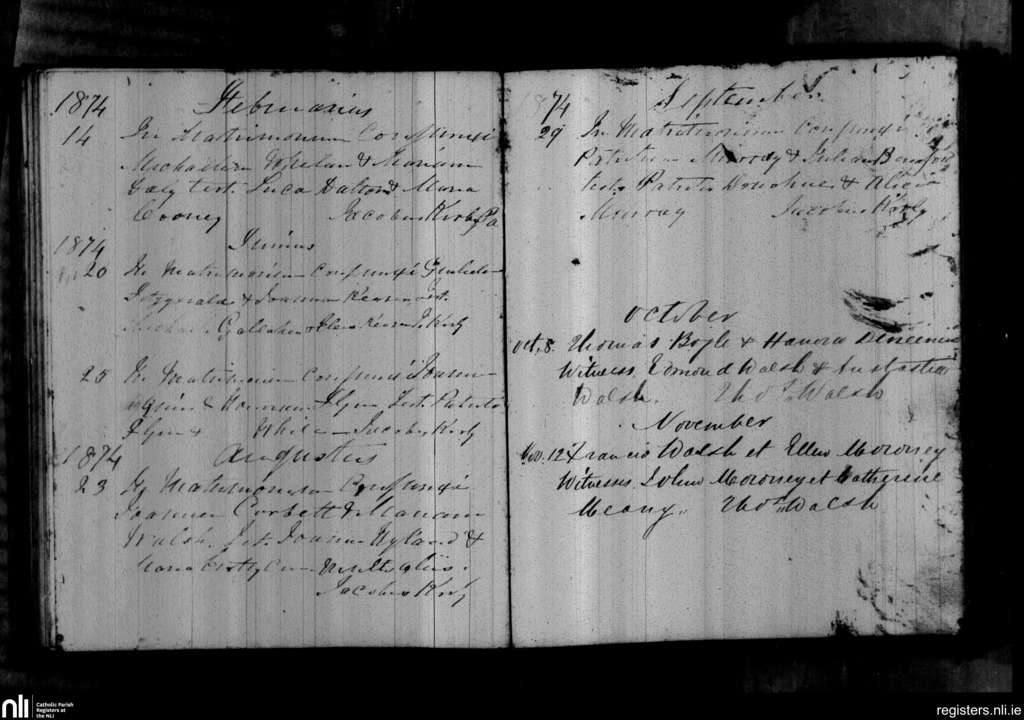 1874 Februarius
14 In Matrimonium Conjunxi
Michaelem Whelan & Mariam
Daly test. Luca Dalton & Maria
Cooney Jacobus Kirby Pa
1874 Junius
20 In Matrimonium Conjunxi
Fitzgerald & Joannam
Michael Gallahan & J Kirby
25 In Matrimonium Conjunxi Joannem
Quin & Flynn Test. Patritio
Flynn & Jacobus Kirby
1874 Augustus
23 In Matrimonium Conjunxi
Joannem Corbett & Mariam
Walsh. Test. Joanne Hyland &
Maria cum multis aliis.
Jacobus Kirby
74 September
29 In Matrimonium Conjunxi
Patritium Murray & Juliam
test. Patritio Donohue & Alicia
Murray Jacobus Kirby
October
Oct. 8. Thomas Boyle & Hanora
Witness Edmond Walsh &
Walsh. Thos. Walsh
November
Nov. 12 Francis Walsh et Ellen Moroney
Witnesses John Moroney et Catherine
Meany Thos. Walsh
nli
Catholic Parish
Registers at
the NLI
registers.nli.ie